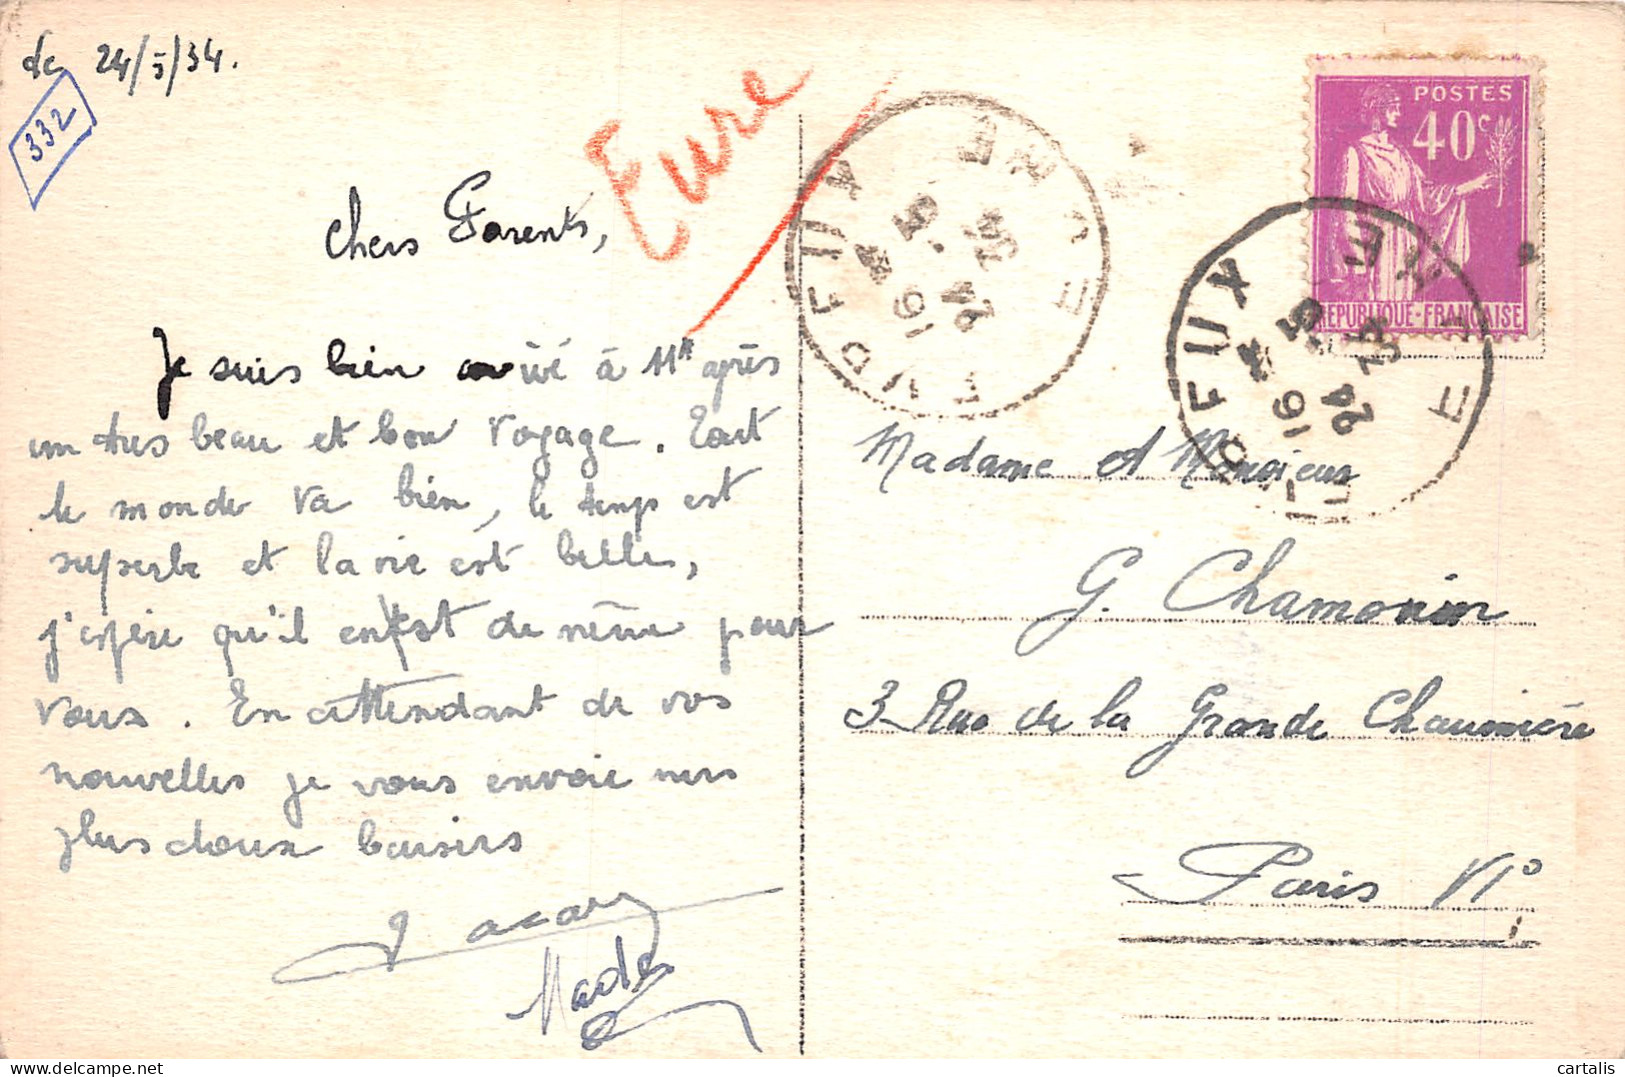 de 24/5/34.
332
Eure
Chers Parents,
Je suis bien arrivé à 11h après
un tres beau et bon voyage. Tout
le monde va bien, le temps est
superbe et la vie est belle,
j'espère qu'il en est de même pour
vous. En attendant de vos
nouvelles je vous envoie mes
plus doux baisers
POSTES
40c
REPUBLIQUE-FRANÇAISE
EUDFUX
EURE
16
24
5
34
EUDFUX
EURE
16
24
5
34
Madame et Monsieur
G. Chamonin
3 Rue de la Grande Chaumière
Paris VI°
cartalis